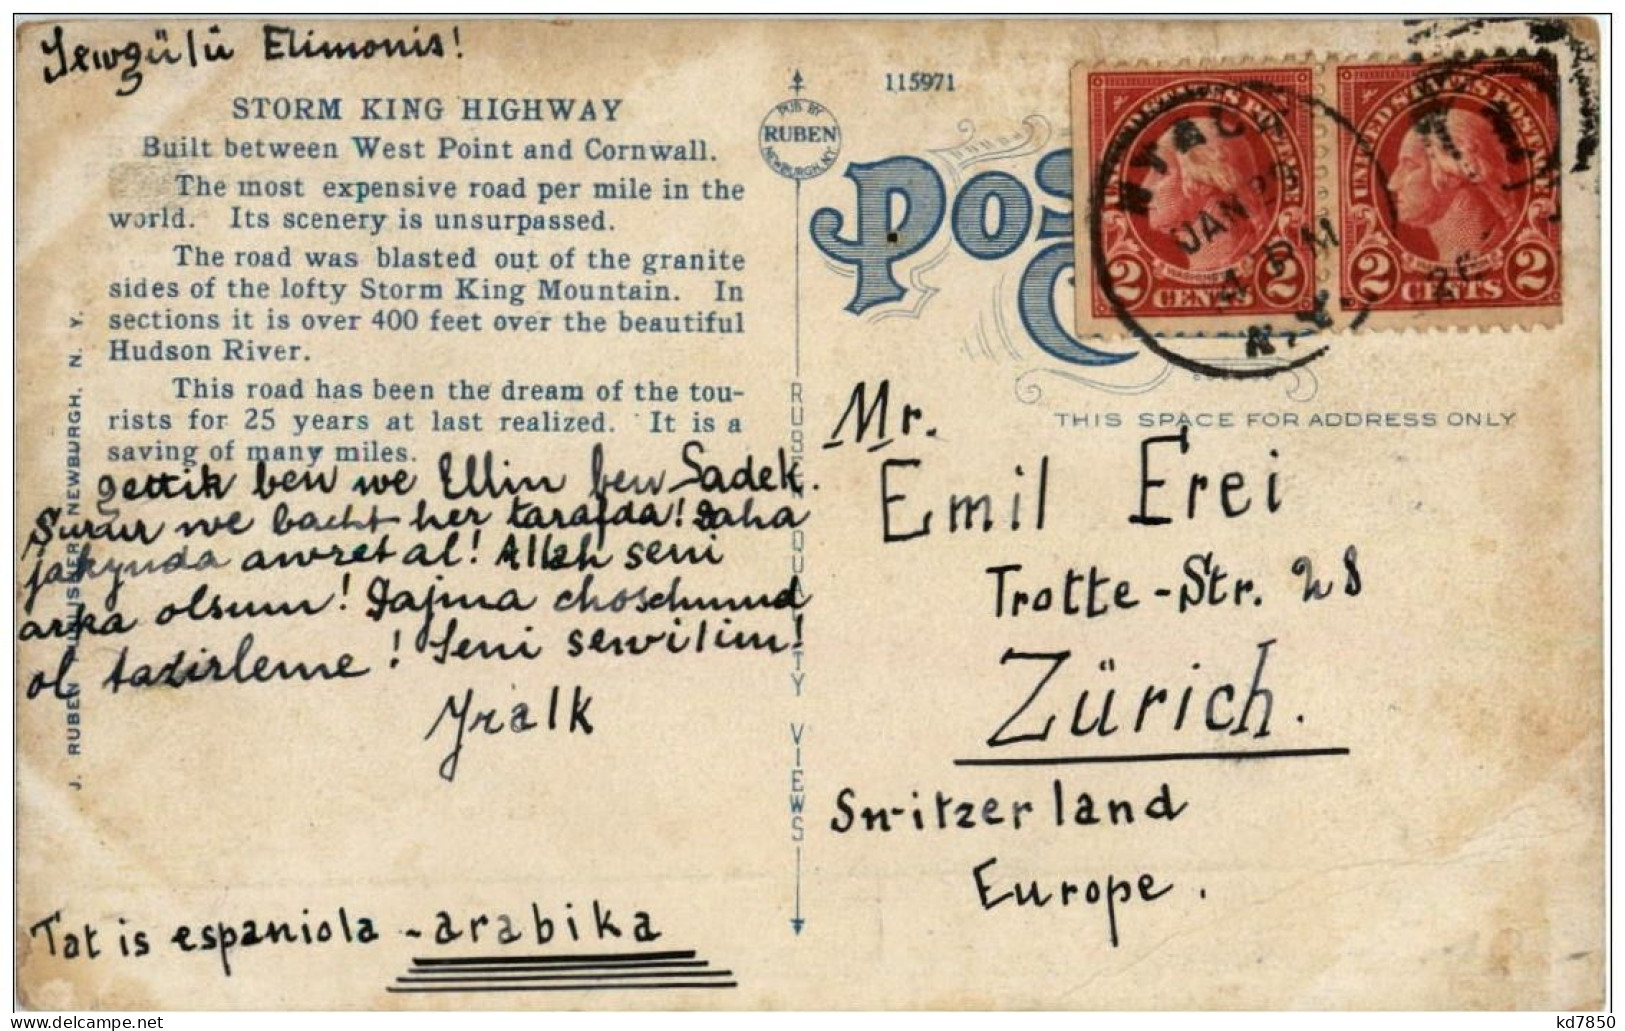 Sewgülü Elimonis!
STORM KING HIGHWAY
Built between West Point and Cornwall.
The most expensive road per mile in the
world. Its scenery is unsurpassed.
The road was blasted out of the granite
sides of the lofty Storm King Mountain. In
sections it is over 400 feet over the beautiful
Hudson River.
This road has been the dream of the tou-
rists for 25 years at last realized. It is a
saving of many miles.
gettik ben we Ellin ben Sadek.
Surur we bacht her tarafda! Daha
jakynda awret al! Allah seni
arka olsum! Dajma choschnud
ol tazirleme! Seni sewilim!
Tat is espaniola - arabika
J. RUBEN PUBLISHER NEWBURGH, N. Y.
PUB. BY
RUBEN
NEWBURGH, N.Y.
RUBEN QUALITY VIEWS
115971
UNITED STATES POSTAGE
2 CENTS 2
UNITED STATES POSTAGE
2 CENTS 2
NYACK
JAN
4 PM
N.Y.
THIS SPACE FOR ADDRESS ONLY
Mr.
Emil Erei
Trotte-Str. 28
Zürich.
Switzerland
Europe.
kd7850